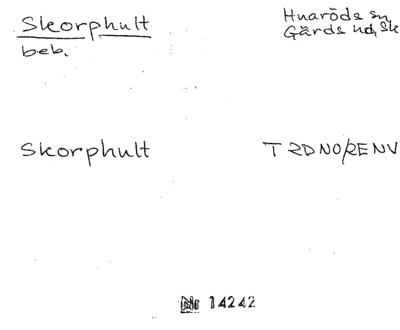 Skorphult
beb.
Huaröds sn
Gärds hd, Sk
Skorphult
T RDNO/RENV
Nr 14242